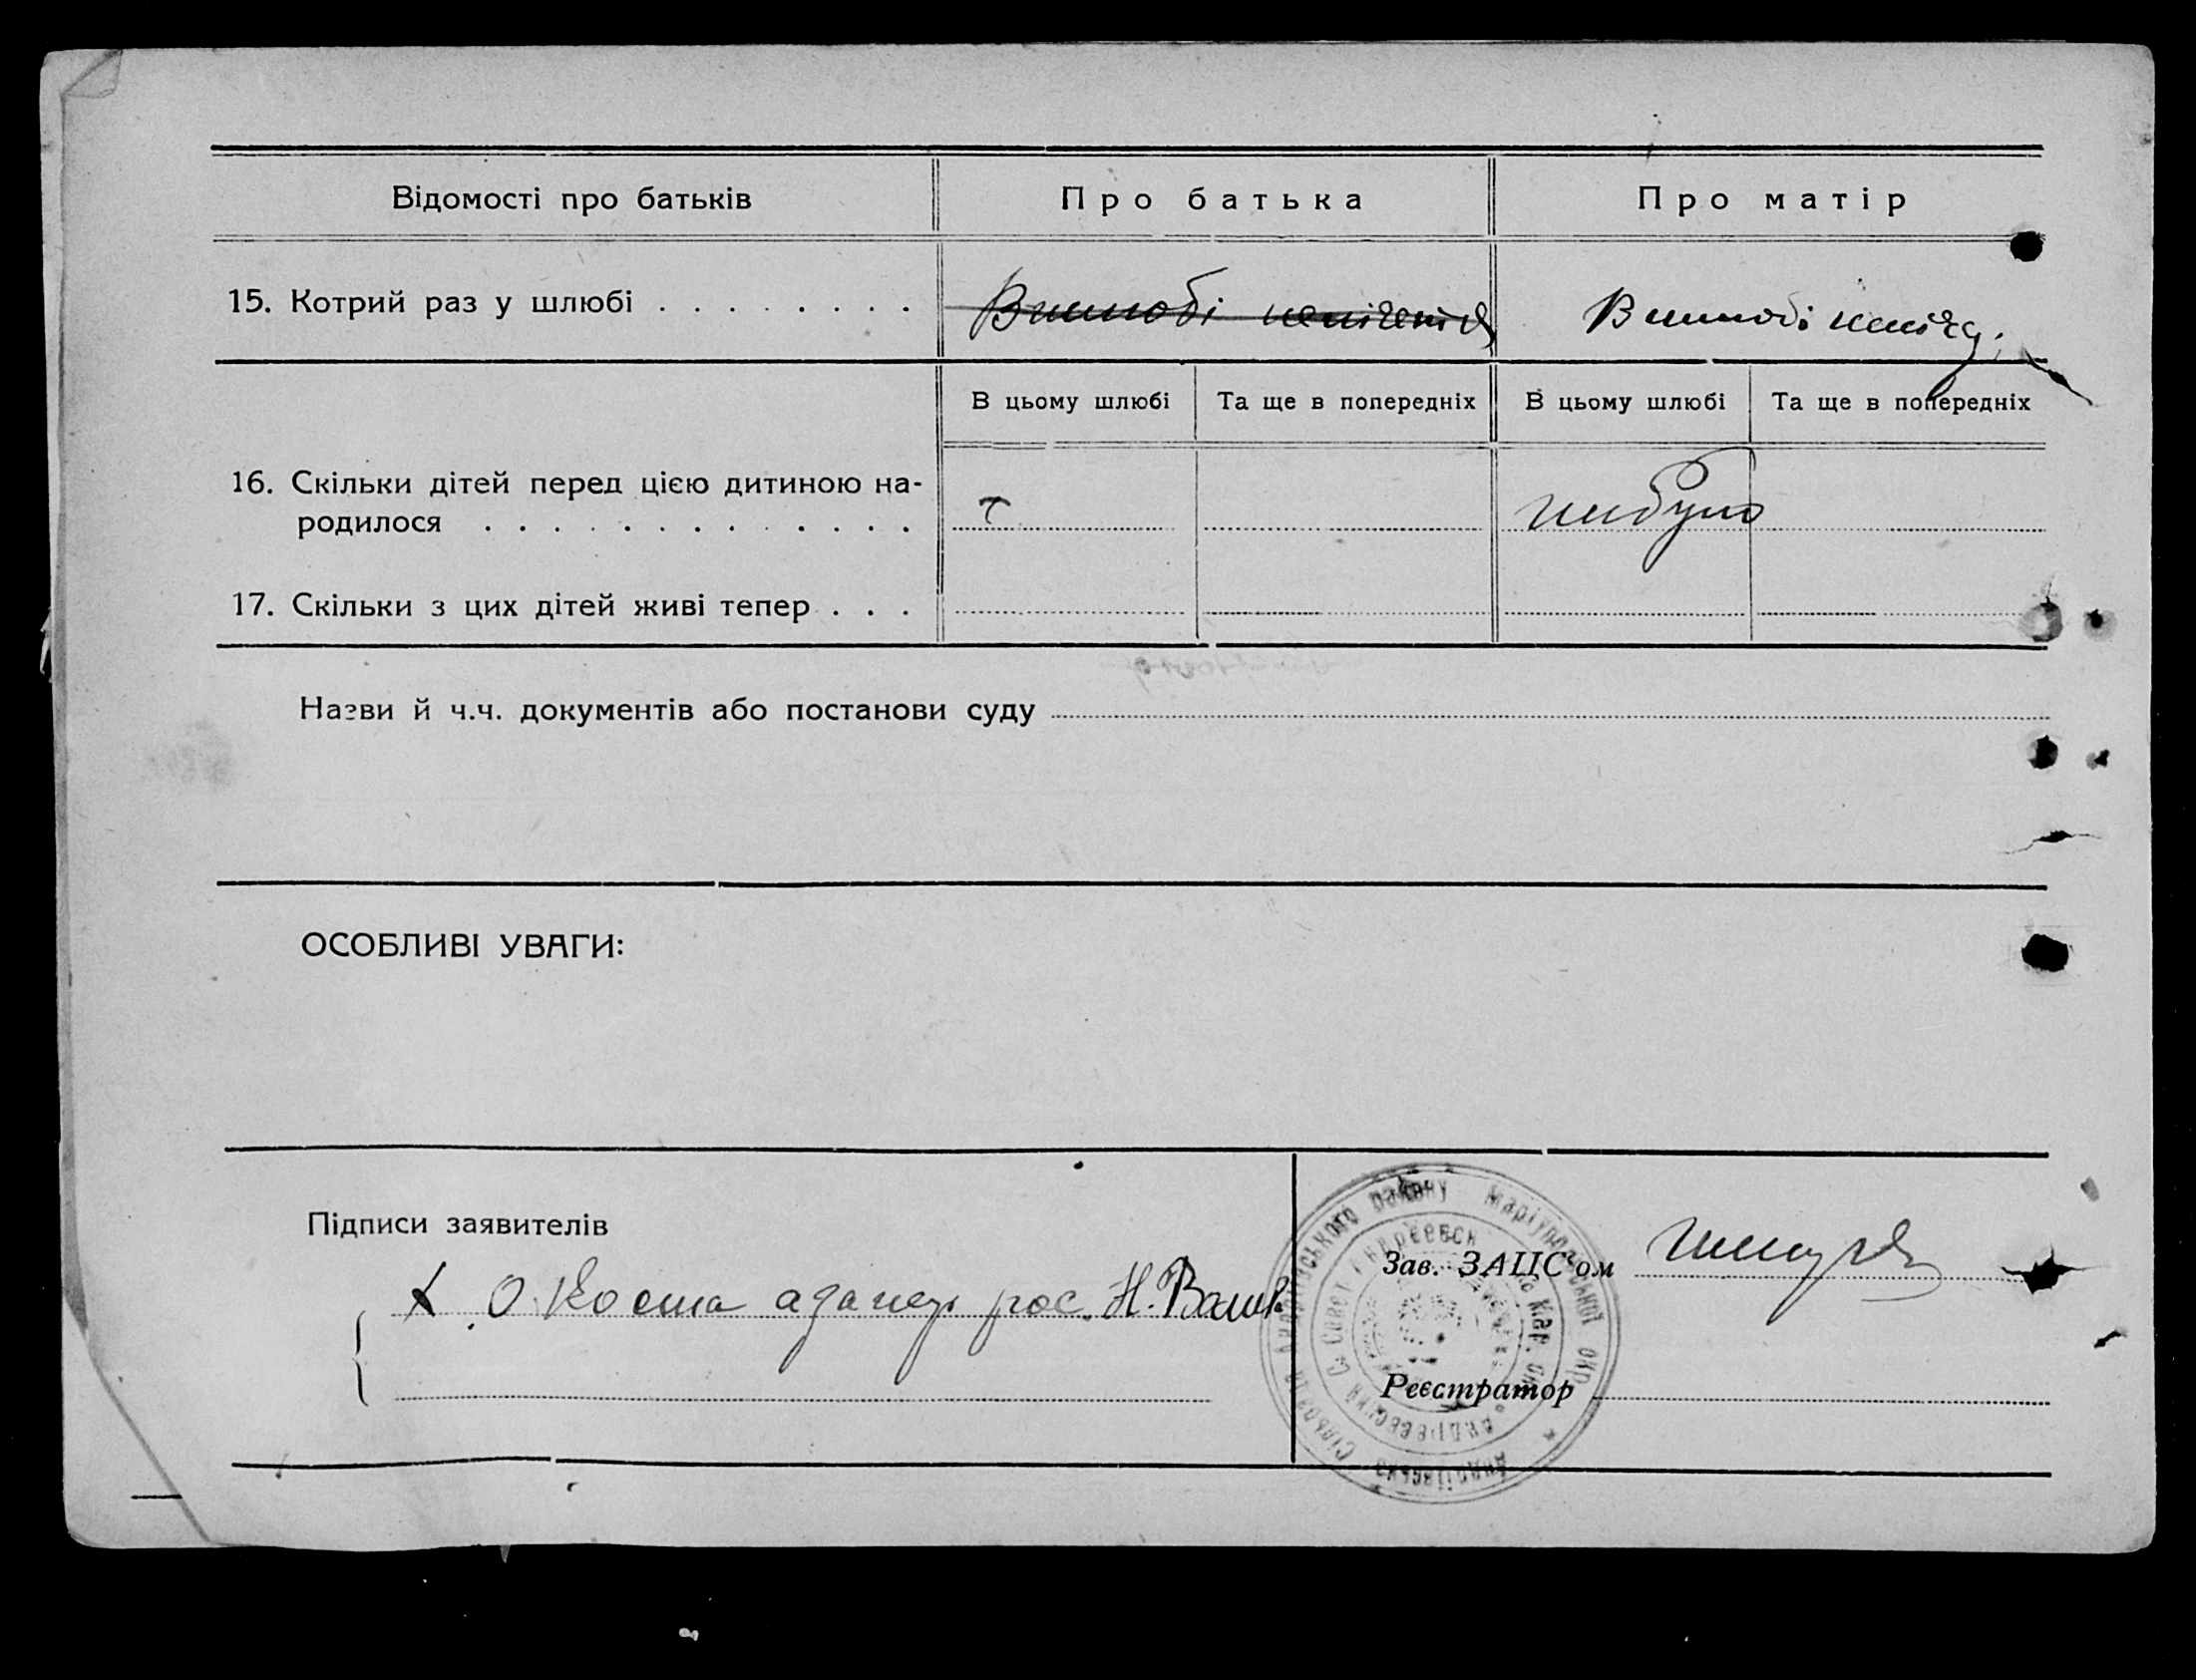 Відомості про батьків
Про батька
Про матір
15. Котрий раз у шлюбі
В шлюбі
В шлюбі
В цьому шлюбі
Та ще в попередніх
В цьому шлюбі
Та ще в попередніх
16. Скільки дітей перед цією дитиною на-
родилося
небуло
17. Скільки з цих дітей живі тепер
Назви й ч.ч. документів або постанови суду
ОСОБЛИВІ УВАГИ:
Підписи заявителів
рос. Н.
Зав. ЗАЦС'ом
Реєстратор
району Маріупольської окр.
Андріївська Сільрада